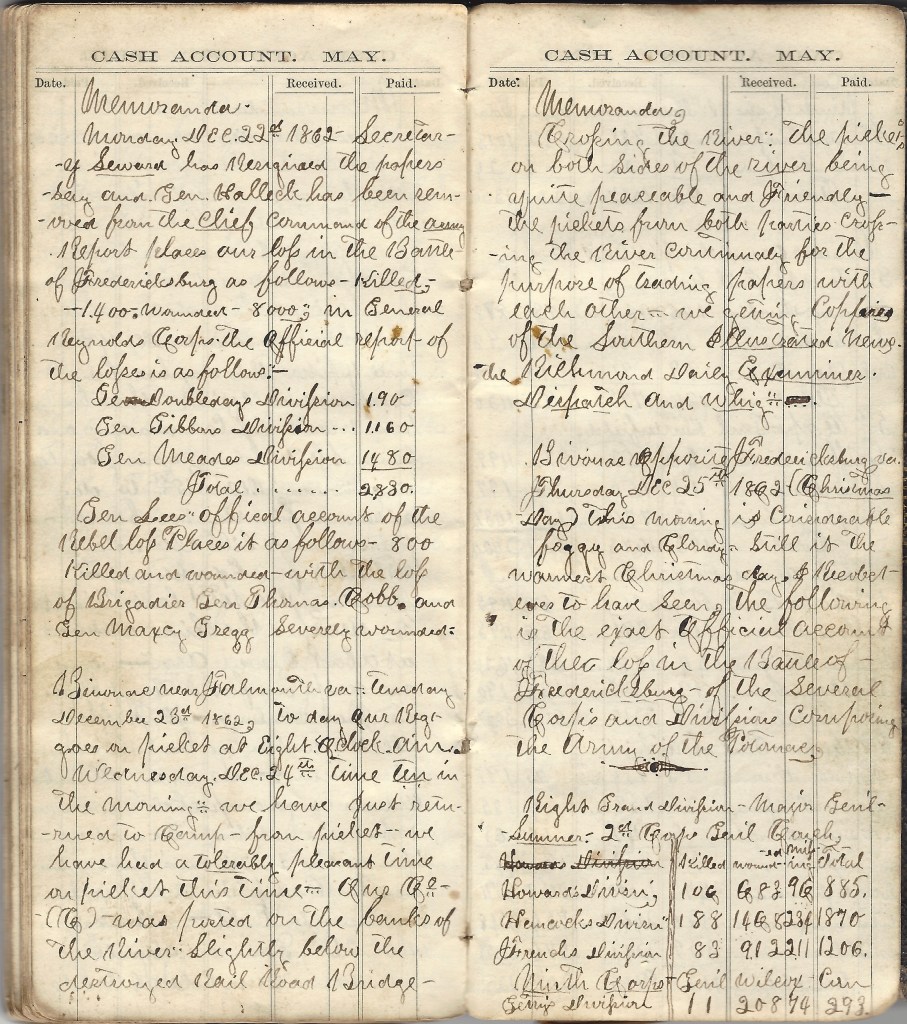 CASH ACCOUNT. MAY.
Date. Received. Paid.
Memoranda.
Monday. DEC. 22nd 1862 Secretar-
-y Seward has Resignied the papers
say and. Gen. Halleck has been rem-
-oved from the Chief command of the army
Report places our loss in the Battle
of Fredericksburg as follows - Killed,
-1400, wounded - 8000; in General
Reynolds Corps. the Official report of
the losses is as follows:-
Gen Doubledays Division 190
Gen Gibbons Division ... 1160
Gen Meades Division 1480
Total ...... 2830.
Gen Lees" offical account of the
Rebel loss Places it as follows - 800
Killed and wounded - with the loss
of Brigadier Gen Thomas. Cobb. and
Gen Maxcy Gregg Severely wounded:
Bivouac near Falmouth va - Tuesday
December 23rd 1862, To day Our Regt
goes on picket at Eight O,Clock. a.m.
Wednesday. DEC. 24th time ten in
the morning: we have Just retu-
-rned to Camp - from picket - we
have had a tolerably pleasant time
on picket this time - Our Co -
- (C) - was posted on the banks of
the River Slightly below the
destroyed Rail Road Bridge -
CASH ACCOUNT. MAY.
Date. Received. Paid.
Memoranda,
Crossing the River: The pickets
on both Sides of the river being
quite peaceable and Friendly -
the pickets from both parties Cross-
-ing the River Communaly for the
purpose of trading papers with
each other - we geting Coppies
of the Southern Illustrated News.
the Richmond Daily Examiner.
Dispatch and Whig"
Bivouac Opposite Fredericksburg va.
Thursday DEC 25th 1862 (Christmas
Day) This morning is Considerable
foggy and Cloudy - Still it the
warmest Christmas day I Recolect-
ever to have Seen, The following
is the exact Official account
of ther loss in the Battle of -
Fredericksburg - of the Several
Corps and Divisions Composing
the Army of the Potomac,
Right Grand Division - Major Genl -
- Sumner - 2nd Corps Genl Couch,
Howards Division Killed wounded missing Total
Howards Divisin, 106 683 96 885.
Hancocks Divisin" 188 1468 234 1870
Frenchs Division 83 912 211 1206.
Ninth Corps - Genl Wilcox - Com
Gettys Division 11 208 74 293.